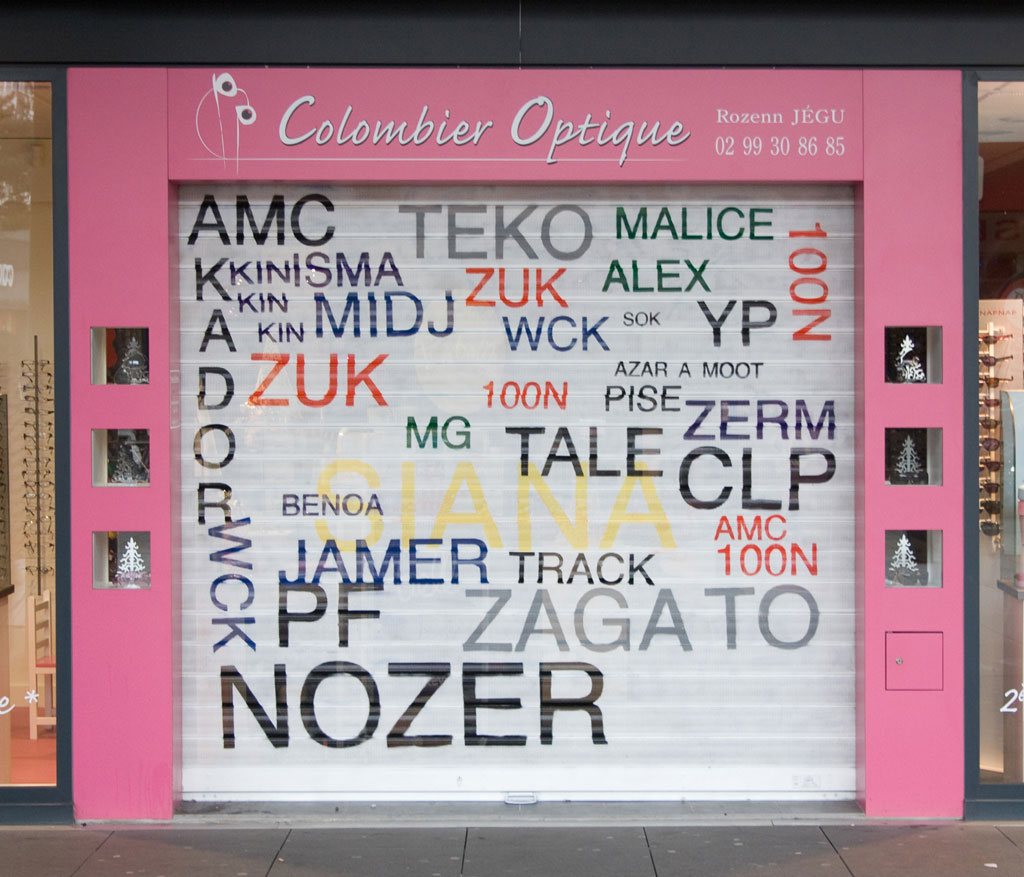 Colombier Optique
Rozenn JÉGU
02 99 30 86 85
AMC
TEKO
MALICE
100N
AKADOR
KINISMA
KIN
KIN
MIDJ
ZUK
ALEX
WCK
SOK
YP
ZUK
100N
AZAR A MOOT
PISE
ZERM
MG
TALE
CLP
SIANA
BENOA
WCK
JAMER
TRACK
AMC
100N
PF
ZAGATO
NOZER
NAFNAF